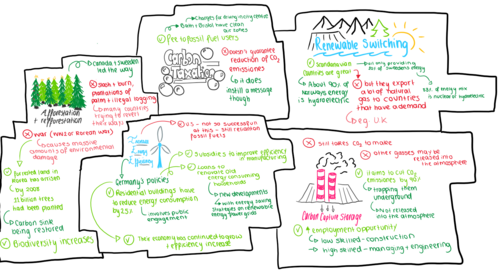 Changes for driving fishing centre
Bath + Bristol have clean
air zones
Fee to fossil fuel users
Carbon
Taxation
Doesn't guarantee
reduction of CO2
emissions
it does
instill a message
though
Renewable Switching
Scandinavian
Countries are great
but only providing
of Sweden's energy
About 90% of
norways energy
is hydroelectric
but they export
a lot of natural
gas to countries
that have a demand
eg. UK
of energy mix
is nuclear or hydroelectric
Afforestation
+ reforestation
Canada + Sweden
led the way
slash + burn,
plantations of
palms + illegal logging
(many countries
trying to reverse
the loss)
War (WW2 or Korean War)
causes massive
amounts of environmental
damage
planted
by 2008
11 billion trees
had been planted
Carbon sink
being restored
Biodiversity increases
U.S. - not so successful
at this - still reliant on
fossil fuels
Germany's policies
Residential buildings have
to reduce energy consumption
by 25%
involves public
engagement
Subsidies to improve efficiency
of manufacturing
Loans to
renovate and
energy consuming
households
new developments
with energy saving
strategies or renewable
energy power grids
The economy has continued to grow as
efficiency increases
Still takes CO2 to make
other gasses may be
released into the
atmosphere
Carbon Capture Storage
aims to cut CO2
emissions by 90%
trapping them
underground
not released
into the atmosphere
↑ employment opportunity
low skilled - construction
high skilled - managing + engineering